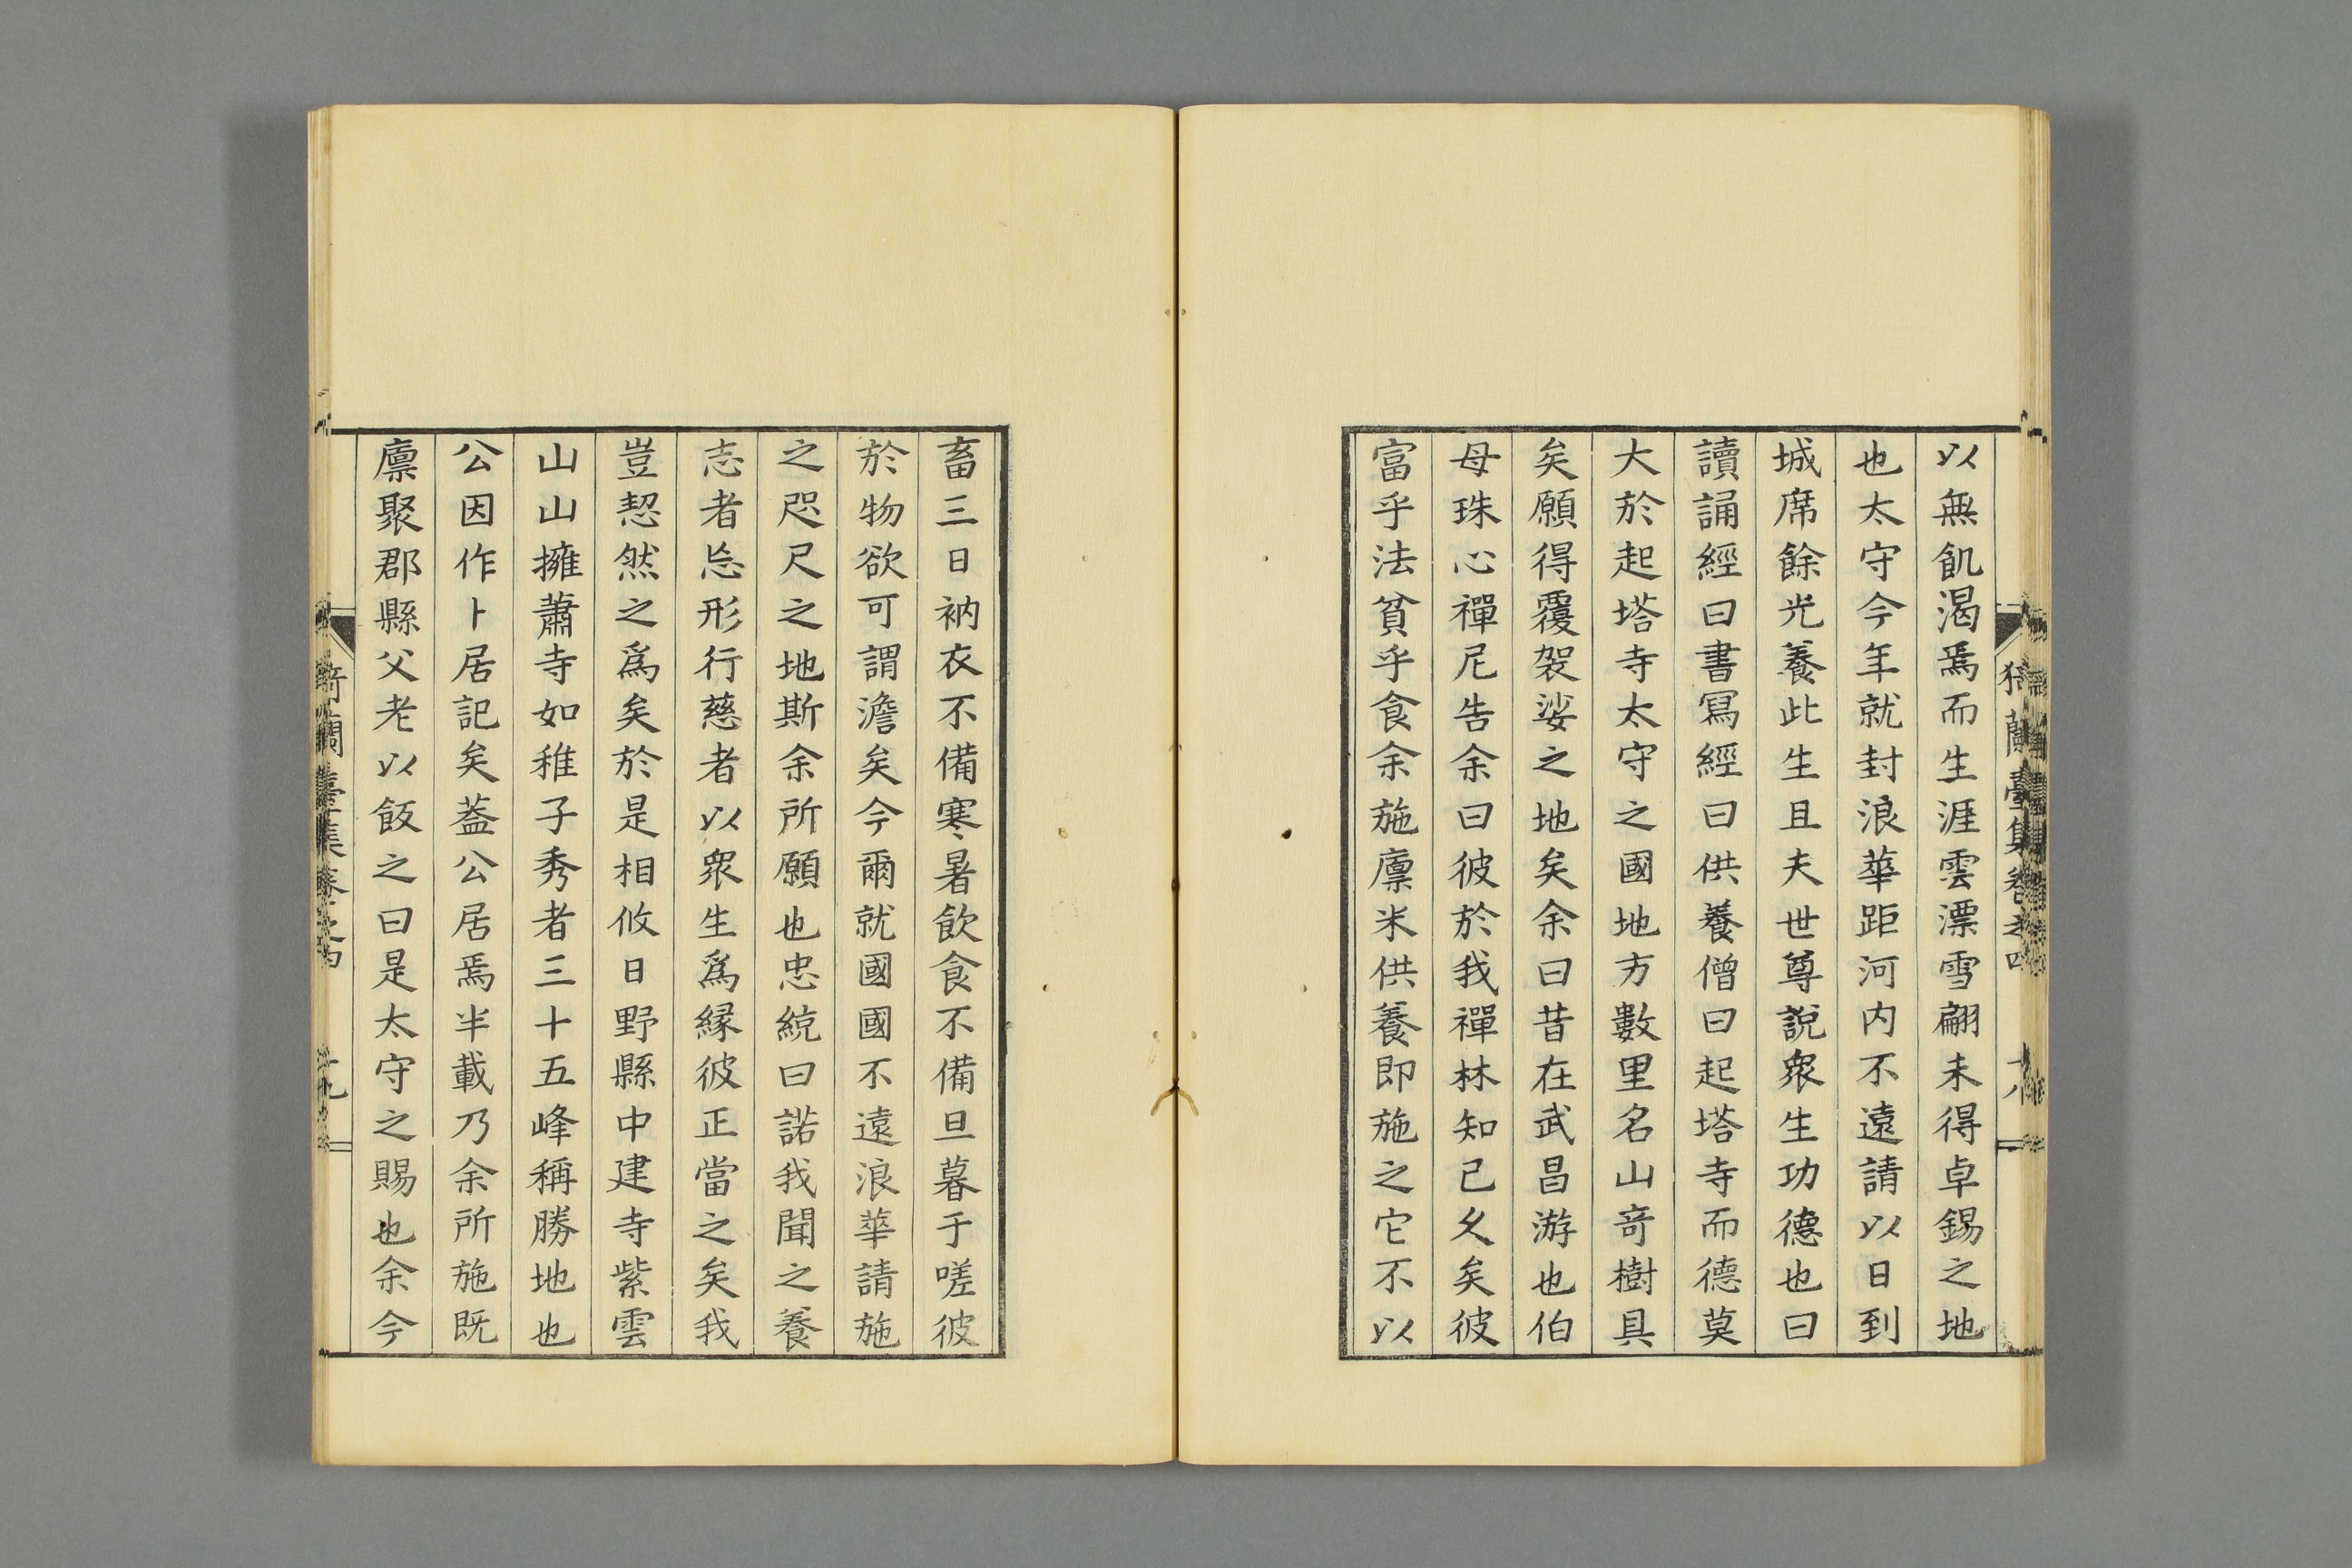 以無飢渴焉而生涯雲漂雪翩未得卓錫之地
也太守今年就封浪華距河内不遠請以日到
城席餘光養此生且夫世尊說衆生功德也曰
讀誦經曰書寫經曰供養僧曰起塔寺而德莫
大於起塔寺太守之國地方數里名山奇樹具
矣願得覆袈娑之地矣余曰昔在武昌游也伯
母珠心禪尼告余曰彼於我禪林知己久矣彼
富乎法貧乎食余施廩米供養即施之它不以
猗蘭臺集卷之四 十八
畜三日衲衣不備寒暑飲食不備旦暮于嗟彼
於物欲可謂澹矣今爾就國國不遠浪華請施
之咫尺之地斯余所願也忠統曰諾我聞之養
志者忘形行慈者以衆生爲緣彼正當之矣我
豈恝然之爲矣於是相攸日野縣中建寺紫雲
山山擁蕭寺如稚子秀者三十五峰稱勝地也
公因作卜居記矣葢公居焉半載乃余所施既
廩聚郡縣父老以飯之曰是太守之賜也余今
猗蘭臺集卷之四 十九